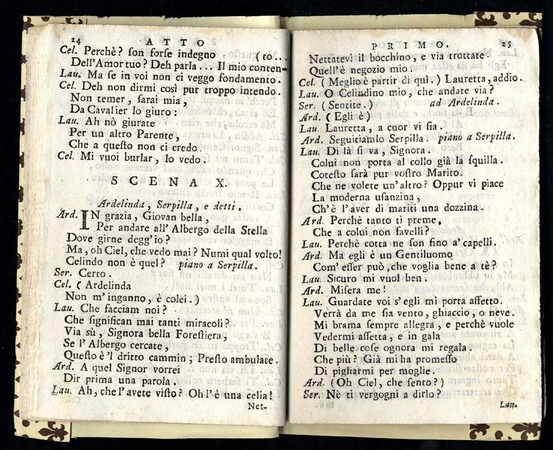 24 ATTO
Cel. Perchè? son forse indegno (to...
Dell'Amor tuo? Deh parla... Il mio conten-
Lau. Ma se in voi non ci veggo fondamento.
Cel. Deh non dirmi così pur troppo intendo.
Non temer, sarai mia,
Da Cavalier lo giuro:
Lau. Ah nò giurate
Per un altro Parente,
Che a questo non ci credo.
Cel. Mi vuoi burlar, lo vedo.
SCENA X.
Ardelinda, Serpilla, e detti.
Ard. IN grazia, Giovan bella,
Per andare all'Albergo della Stella
Dove girne degg'io?
Ma, oh Ciel, che vedo mai? Numi qual volto!
Celindo non è quel? piano a Serpilla.
Ser. Certo.
Cel. (Ardelinda
Non m'inganno, è colei.)
Lau. Che facciam noi?
Che significan mai tanti miracoli?
Via sù, Signora bella Forestiera,
Se l'Albergo cercate,
Questo è 'l dritto cammin; Presto ambulate.
Ard. A quel Signor vorrei
Dir prima una parola.
Lau. Ah, che l'avete visto? Oh l'è una celia!
Net-
PRIMO. 25
Nettatevi il bocchino, e via trottate.
Quell'è negozio mio.
Cel. (Meglio è partir di quì.) Lauretta, addio.
Lau. O Celindino mio, che andate via?
Ser. (Sentite.) ad Ardelinda.
Ard. (Egli è)
Lau. Lauretta, a cuor vi sia.
Ard. Seguitiamlo Serpilla. piano a Serpilla.
Lau. Di là si va, Signora.
Colui non porta al collo già la squilla.
Cotesto sarà pur vostro Marito.
Che ne volete un'altro? Oppur vi piace
La moderna usanzina,
Ch'è l'aver di mariti una dozzina.
Ard. Perchè tanto ti preme,
Che a colui non favelli?
Lau. Perchè cotta ne son fino a'capelli.
Ard. Ma egli è un Gentiluomo
Com'esser può, che voglia bene a tè?
Lau. Sicuro mi vuol ben.
Ard. Misera me!
Lau. Guardate voi s'egli mi porta affetto.
Verrà da me sia vento, ghiaccio, o neve.
Mi brama sempre allegra, e perchè vuole
Vedermi assetta, e in gala
Di belle cose ognora mi regala.
Che più? Già mi ha promesso
Di pigliarmi per moglie.
Ard. (Oh Ciel, che sento?)
Ser. Nè ti vergogni a dirlo?
Lau.